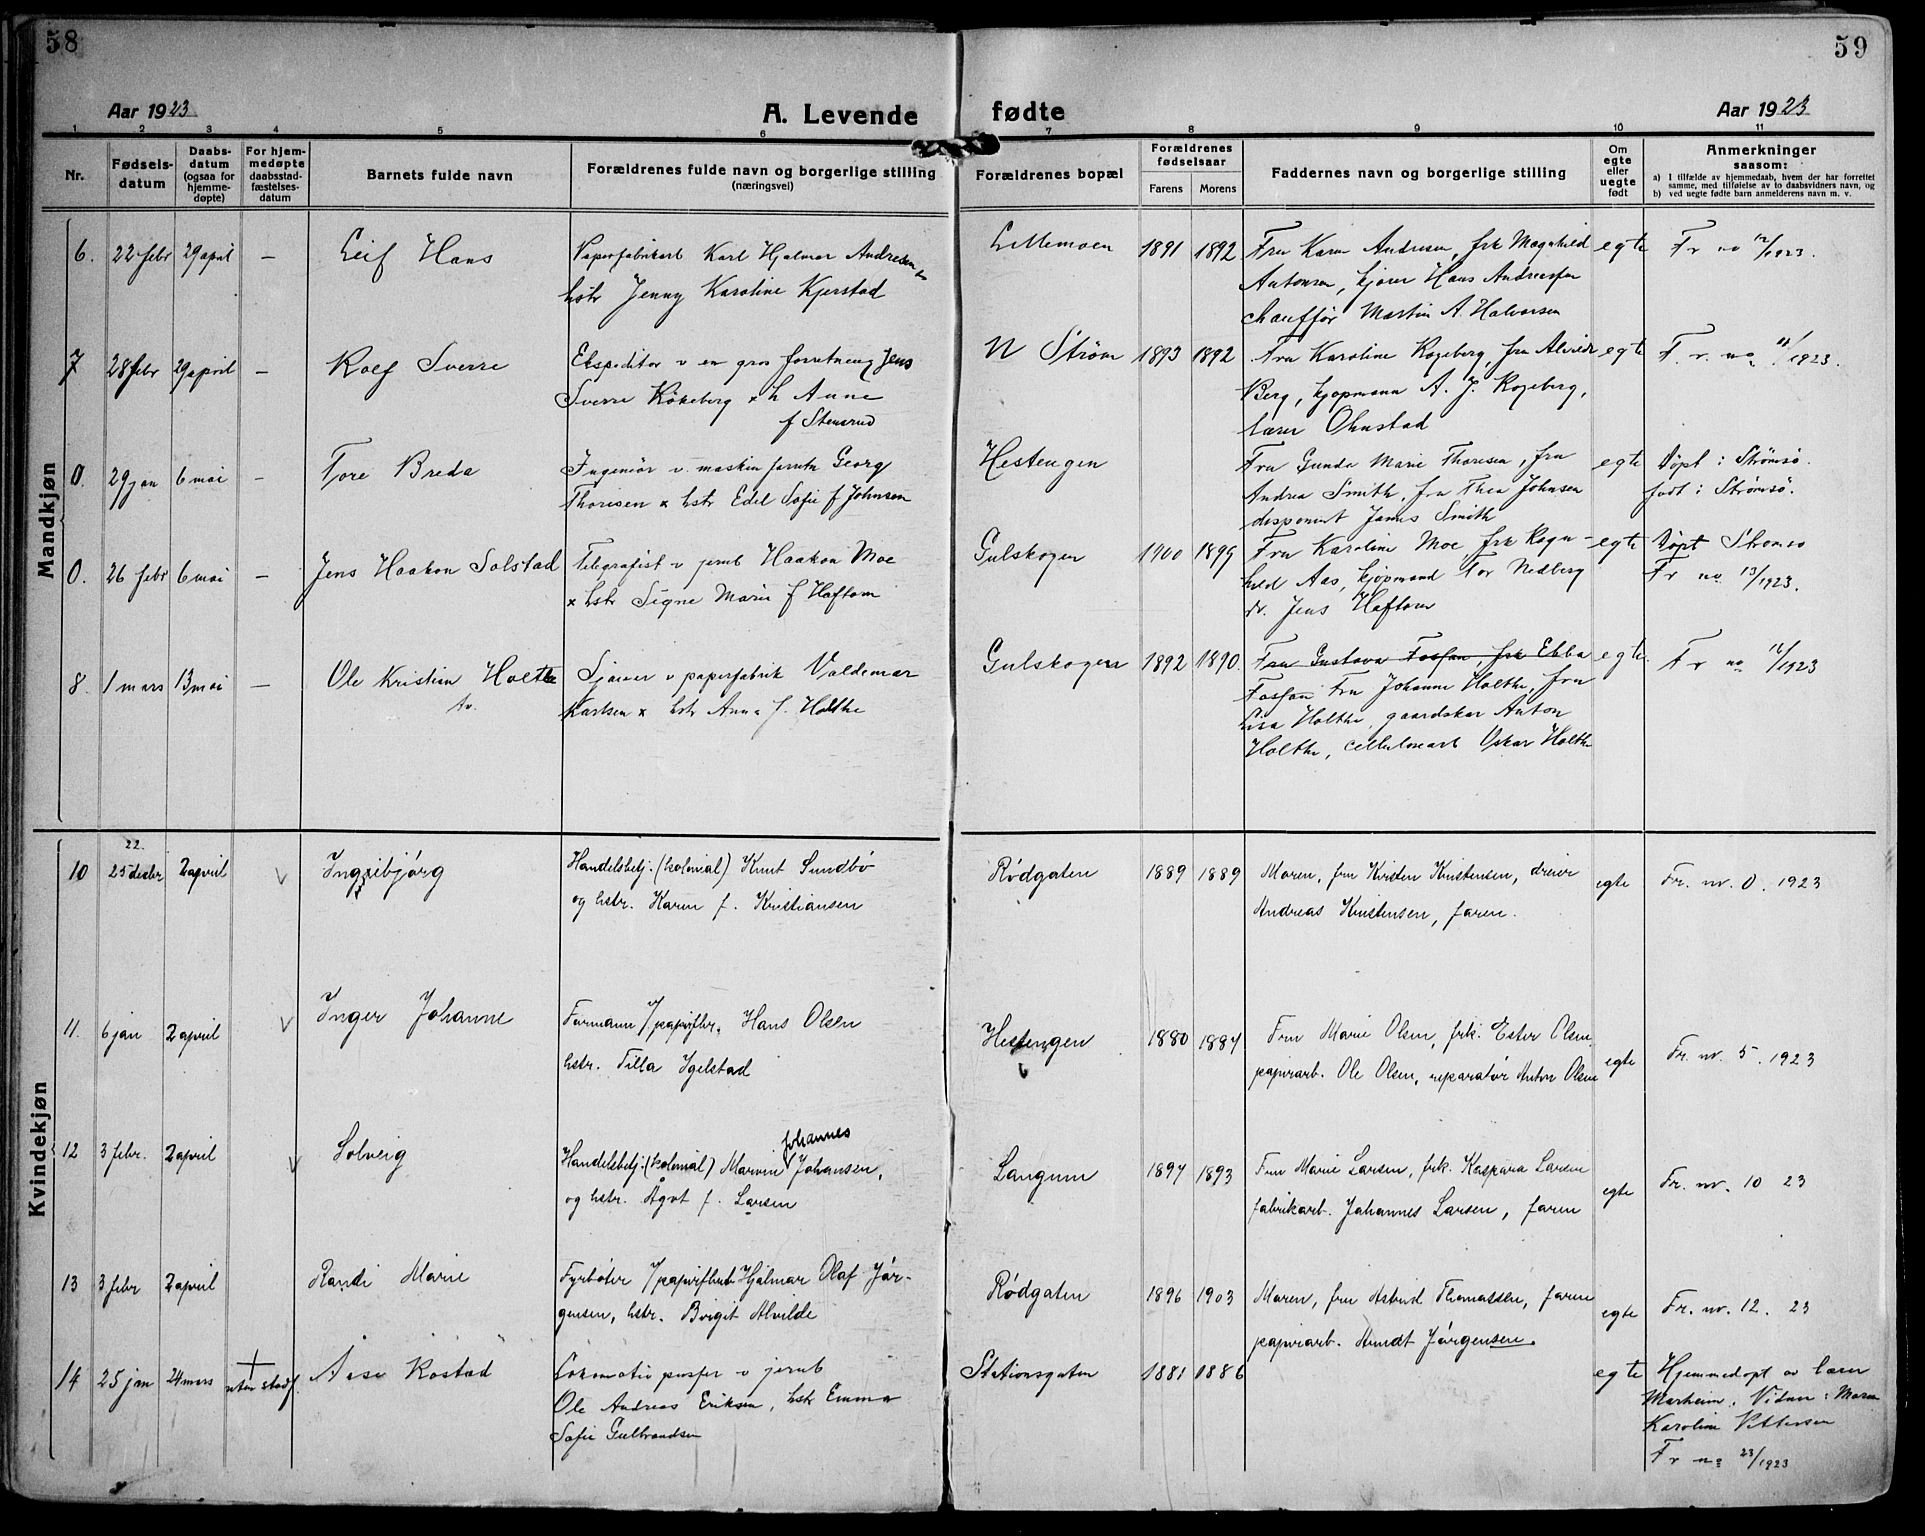 58
59
Aar 1923
A. Levende fødte
Aar 1923
1 2 3 4 5 6 7 8 9 10 11
Nr.
Fødsels-
datum
Daabs-
datum
(ogsaa for
hjemme-
døpte)
For hjem-
medøpte
daabsstad-
fæstelses-
datum
Barnets fulde navn
Forældrenes fulde navn og borgerlige stilling
(næringsvei)
Forældrenes bopæl
Forældrenes
fødselsaar
Farens Morens
Faddernes navn og borgerlige stilling
Om
egte
eller
uegte
født
Anmerkninger
saasom:
a) I tilfælde av hjemmedaab, hvem der har forrettet
samme, med tilføielse av to daabsvidners navn, og
b) ved uegte fødte barn anmelderens navn m. v.
Mandkjøn
6. 22 febr 29 april — Leif Hans
Papirfabrikarb Karl Hjalmar Andresen
hstr Jenny Karoline Kjerstad
Lillemoen 1891 1892
Fru Karen Andresen, frk Magnhild
Antonsen, kjører Hans Andreassen
chauffør Martin A. Halvorsen
egte
Fr no 12/1923.
7 28 febr 29 april — Rolf Sverre
Ekspeditor v en gros forretning Jens
Sverre Kökeberg x h Anne
f Stensrud
N Strøm 1893 1892
Fru Karoline Rogeberg, fru Alvilde
Berg, kjøpmann A. J. Rogeberg,
lærer Ohnstad
egte
F. r. no 11/1923.
0. 29 jan 6 mai — Tore Breda
Ingeniör v. maskin forretn Georg
Thoresen x hstr Edel Sofie f Johnsen
Hestengen
Fru Gunda Marie Thoresen, fru
Andrea Smith, fru Thea Johnsen
disponent James Smith
egte
Döpt i Strömsö.
født i Strömsö.
0. 26 febr 6 mai — Jens Haakon Solstad
Telegrafist v jernb Haakon Moe
x hstr Signe Marie f Haftorn
Gulskogen 1900 1899
Fru Karoline Moe, frk Ragn-
hild Aas, kjøpmand Tor Nedberg
dr. Jens Haftorn
egte
Döpt Strömsö
Fr no. 13/1923.
8. 1 mars 13 mai — Ole Kristian Holthe
Sjauer v papirfabrik Valdemar
Karlsen x hstr Anna f. Holthe
Gulskogen 1892 1890.
Fru Gustava Fossan, frk Ebba
Fossan Fru Johanne Holthe, fru
Lisa Holthe, gaardskar Anton
Holthe, cellulosearb Oskar Holthe
egte.
Fr no 16/1923
Kvindekjøn
22.
10 25 desbr 2 april v Ingebjörg
Handelsbetj. (kolonial) Knut Sundbö
og hstr. Karen f. Kristiansen
Rödgaten 1889 1889
Moren, fru Kirsten Kristensen, dreier
Andreas Kristensen, faren.
egte
Fr. nr. 0. 1923
11. 6 jan 2 april v Inger Johanne
Formann v/ papirfbr. Hans Olsen
hstr. Tilla Igelstad
Hestengen 1880 1884
Fru Marie Olsen, frk. Ester Olsen,
papirarb. Ole Olsen, reparatör Anton Olsen
egte
Fr. nr. 5. 1923
12 3 febr. 2 april v Solveig
Johannes
Handelsbetj. (kolonial) Marvin Johansen,
og hstr. Ågot f. Larsen
Langum 1897 1893
Fru Marie Larsen, frk. Kaspara Larsen
fabrikarb. Johannes Larsen, faren
egte
Fr. nr. 10 23
13 3 febr 2 april Randi Marie
Fyrböter v/ papirfbr Hjalmar Olaf Jör-
gensen, hstr. Birgit Alvilde
Rödgaten 1896 1903
Moren, fru Astrid Thomassen, faren
papirarb. Arndt Jörgensen.
egte
Fr. nr. 12. 23
14 25 jan 24 mars + uten stadf. Aase Rostad
Lokomotiv pusser v jernb
Ole Andreas Eriksen, hstr Emma
Sofie Gulbrandsen
Stationsgaten 1881 1886
egte
Hjemmedøpt av lærer
Marheim, Vidner: Moren
Karoline Pettersen
Fr no 23/1923